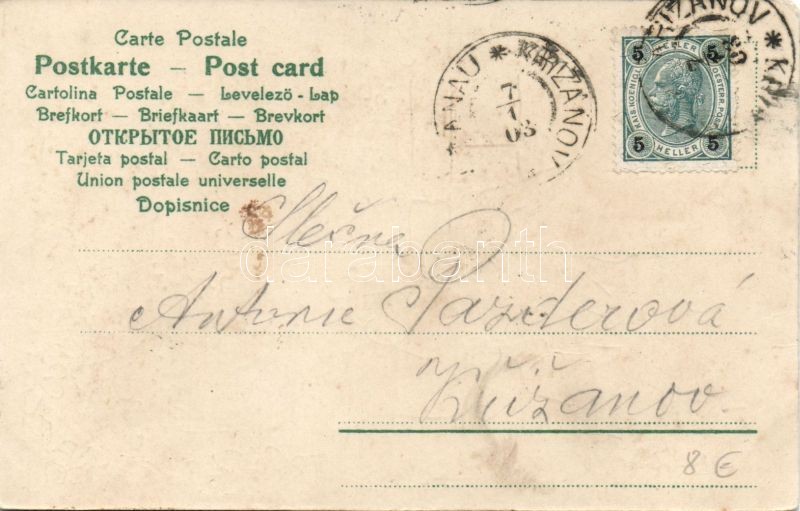 Carte Postale
Postkarte — Post card
Cartolina Postale — Levelező-Lap
Brefkort — Briefkaart — Brevkort
ОТКРЫТОЕ ПИСЬМО
Tarjeta postal — Carto postal
Union postale universelle
Dopisnice
ANAU * KŘIŽANOV
7/1 03
ŘIŽANOV * K
5 HELLER 5
KAIS. KOENIGL. OESTERR. POST
5 HELLER 5
Slečna
darabanth
Antonie Pazderová
Křižanov.
8 €